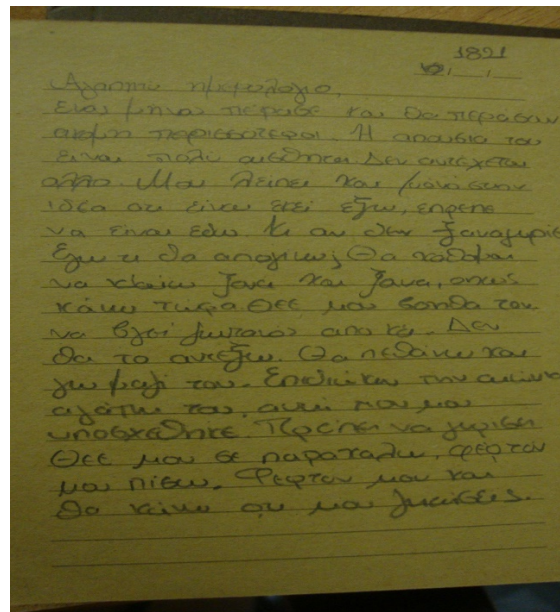 1821
Αγαπητό ημερολόγιο,
Ένας μήνας πέρασε και θα περάσουν
ακόμη περισσότεροι. Η απουσία του
είναι πολύ αισθητή. Δεν αντέχεται
άλλο. Μου λείπει και μόνο στην
ιδέα οτι είναι εκεί έξω, έπρεπε
να είναι εδώ. Κι αν δεν ξαναγυρίσει
Εγω τι θα απογίνω; Θα κάθομαι
να κλαίω ξανά και ξανά, οπως
κάνω τώρα Θεέ μου βοήθα τον
να βγεί ζωντανός απο κει. Δεν
θα το αντέξω. Θα πεθάνω και
γω μαζί του. Επιθυμώ την αιώνια
αγάπη του, αυτή που μου
υποσχέθηκε. Πρέπει να γυρίσει
Θεέ μου σε παρακαλώ, φέρτον
μου πίσω. Φέρτον μου και
θα κάνω οτι μου ζητήσεις.